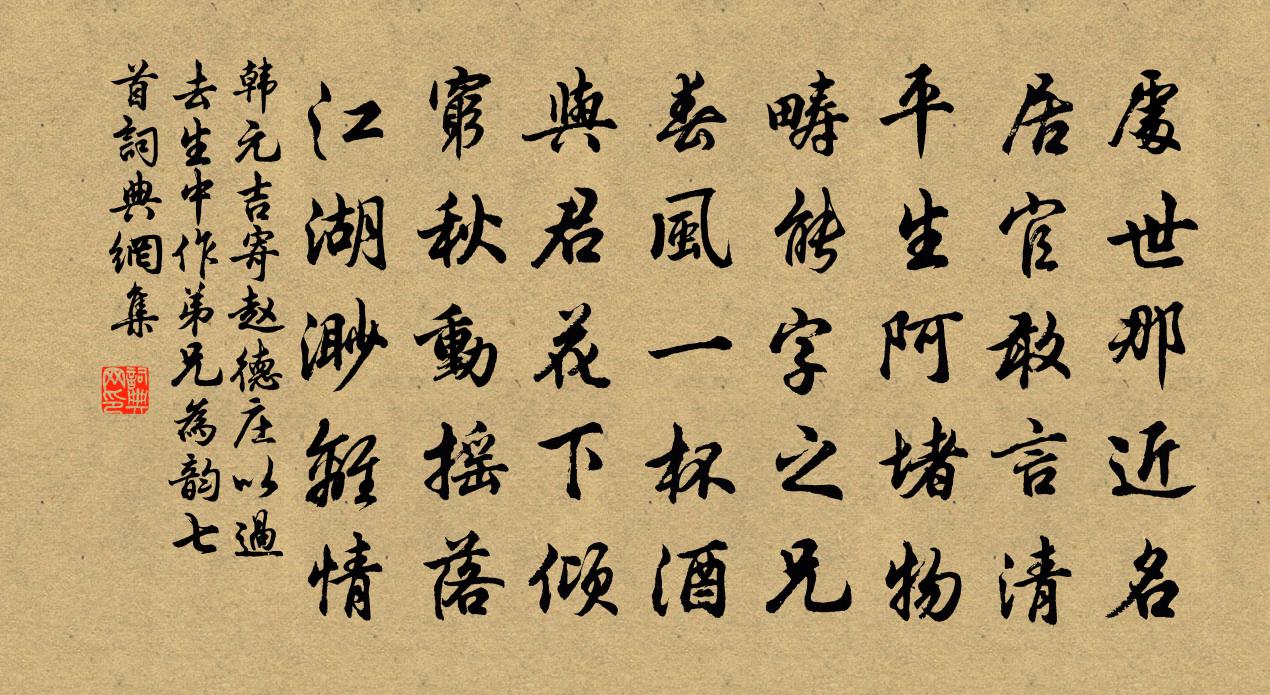 處世那近名
居官敢言清
平生阿堵物
疇能字之兄
春風一杯酒
與君花下傾
窮秋動搖落
江湖渺離情
韩元吉寄赵德庄以過
去生中作弟兄為韵七
首詞典網集
詞典
网印